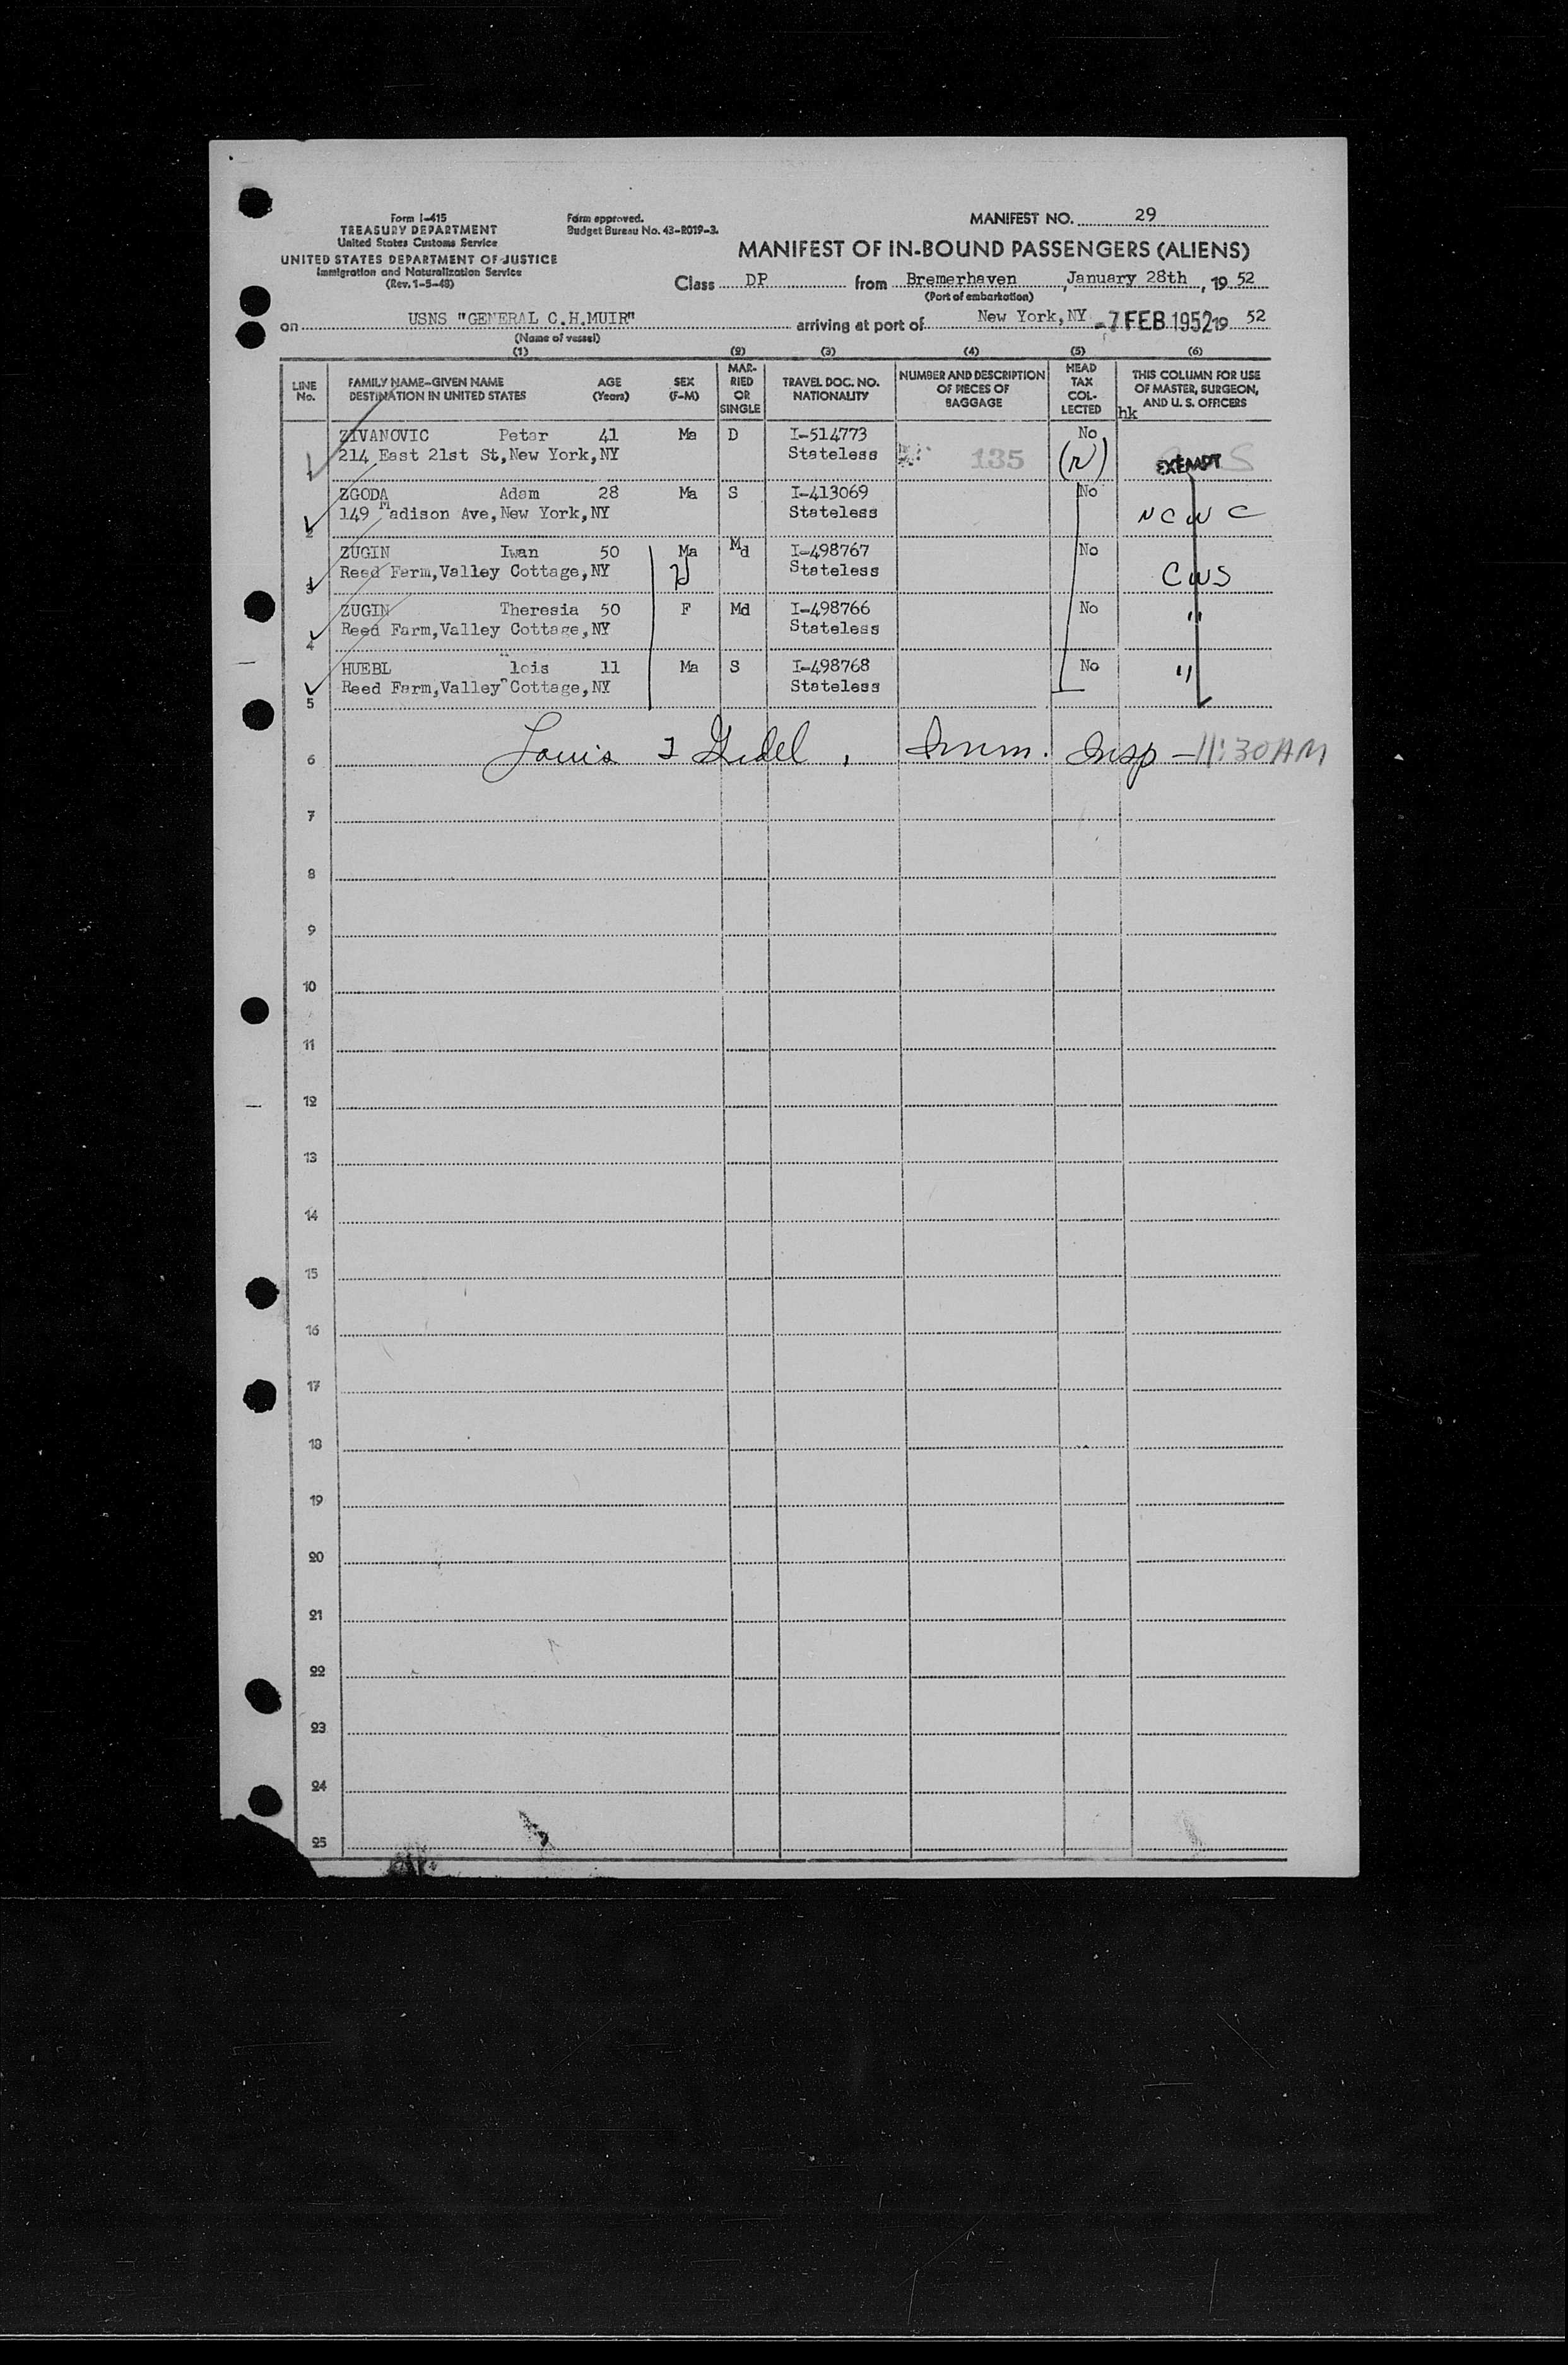 Form I-415
TREASURY DEPARTMENT
United States Customs Service
UNITED STATES DEPARTMENT OF JUSTICE
Immigration and Naturalization Service
(Rev. 1-5-48)
Form approved.
Budget Bureau No. 43-R019-3.
MANIFEST NO. 29
MANIFEST OF IN-BOUND PASSENGERS (ALIENS)
Class DP from Bremerhaven, January 28th, 19 52
(Port of embarkation)
on USNS "GENERAL C.H.MUIR" arriving at port of New York,NY -7 FEB 1952 19 52
(Name of vessel)
(1) (2) (3) (4) (5) (6)
LINE No. FAMILY NAME-GIVEN NAME DESTINATION IN UNITED STATES AGE (Years) SEX (F-M) MARRIED OR SINGLE TRAVEL DOC. NO. NATIONALITY NUMBER AND DESCRIPTION OF PIECES OF BAGGAGE HEAD TAX COLLECTED THIS COLUMN FOR USE OF MASTER, SURGEON, AND U. S. OFFICERS
hk
1 ZIVANOVIC Petar 41 Ma D I-514773 No
214 East 21st St,New York,NY Stateless 135 (r) EXEMPT
2 ZGODA Adam 28 Ma S I-413069 No
149 Madison Ave,New York,NY Stateless NCWC
3 ZUGIN Iwan 50 Ma Md I-498767 No
Reed Farm,Valley Cottage,NY Stateless CWS
4 ZUGIN Theresia 50 F Md I-498766 No
Reed Farm,Valley Cottage,NY Stateless "
5 HUEBL lois 11 Ma S I-498768 No
Reed Farm,Valley Cottage,NY Stateless "
6 Louis Imm. Insp - 11:30AM
7
8
9
10
11
12
13
14
15
16
17
18
19
20
21
22
23
24
25